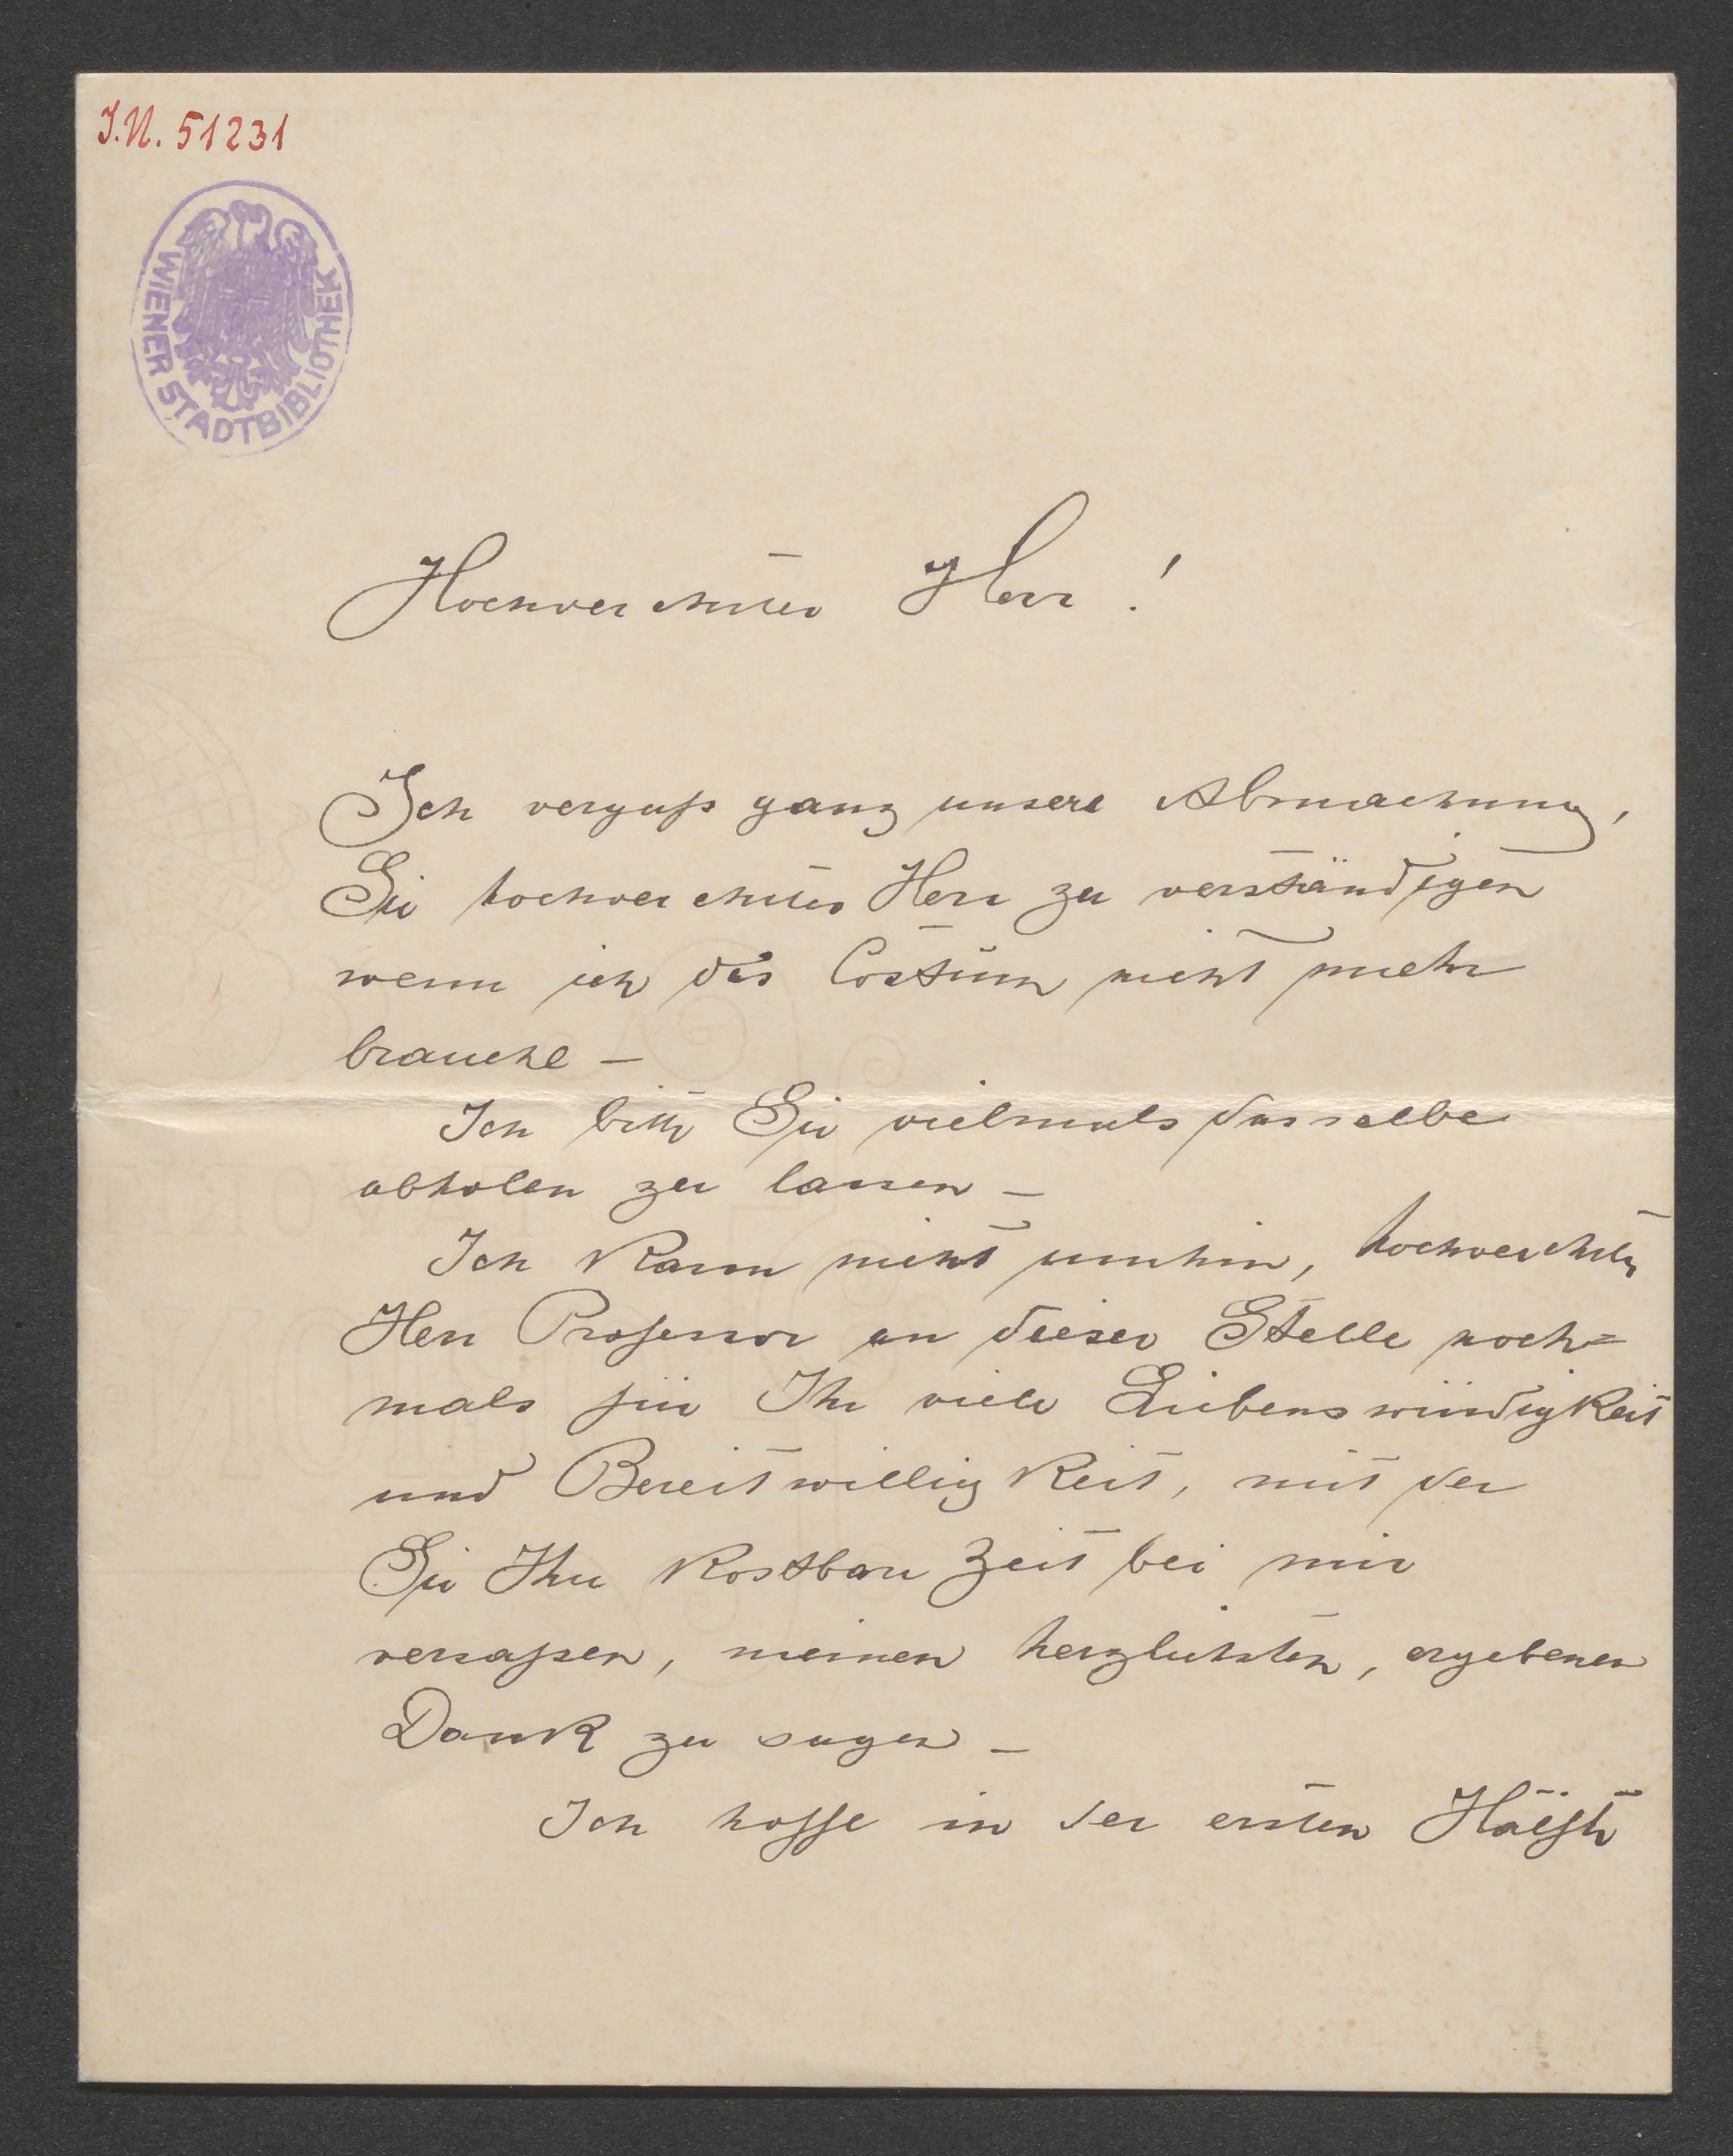 I.N. 51231
WIENER STADTBIBLIOTHEK
Hochverehrter Herr!
Ich vergaß ganz unsere Abmachung,
Sie hochverehrter Herr zu verständigen
wenn ich das Costüm nicht mehr
brauche –
Ich bitte Sie vielmals dasselbe
abholen zu lassen –
Ich kann nicht umhin, hochverehrter
Herr Professor an dieser Stelle noch=
mals für Ihre viele Liebenswürdigkeit
und Bereitwilligkeit, mit der
Sie Ihre kostbare Zeit bei mir
versaßen, meinen herzlichsten, ergebenen
Dank zu sagen –
Ich hoffe in der ersten Hälfte